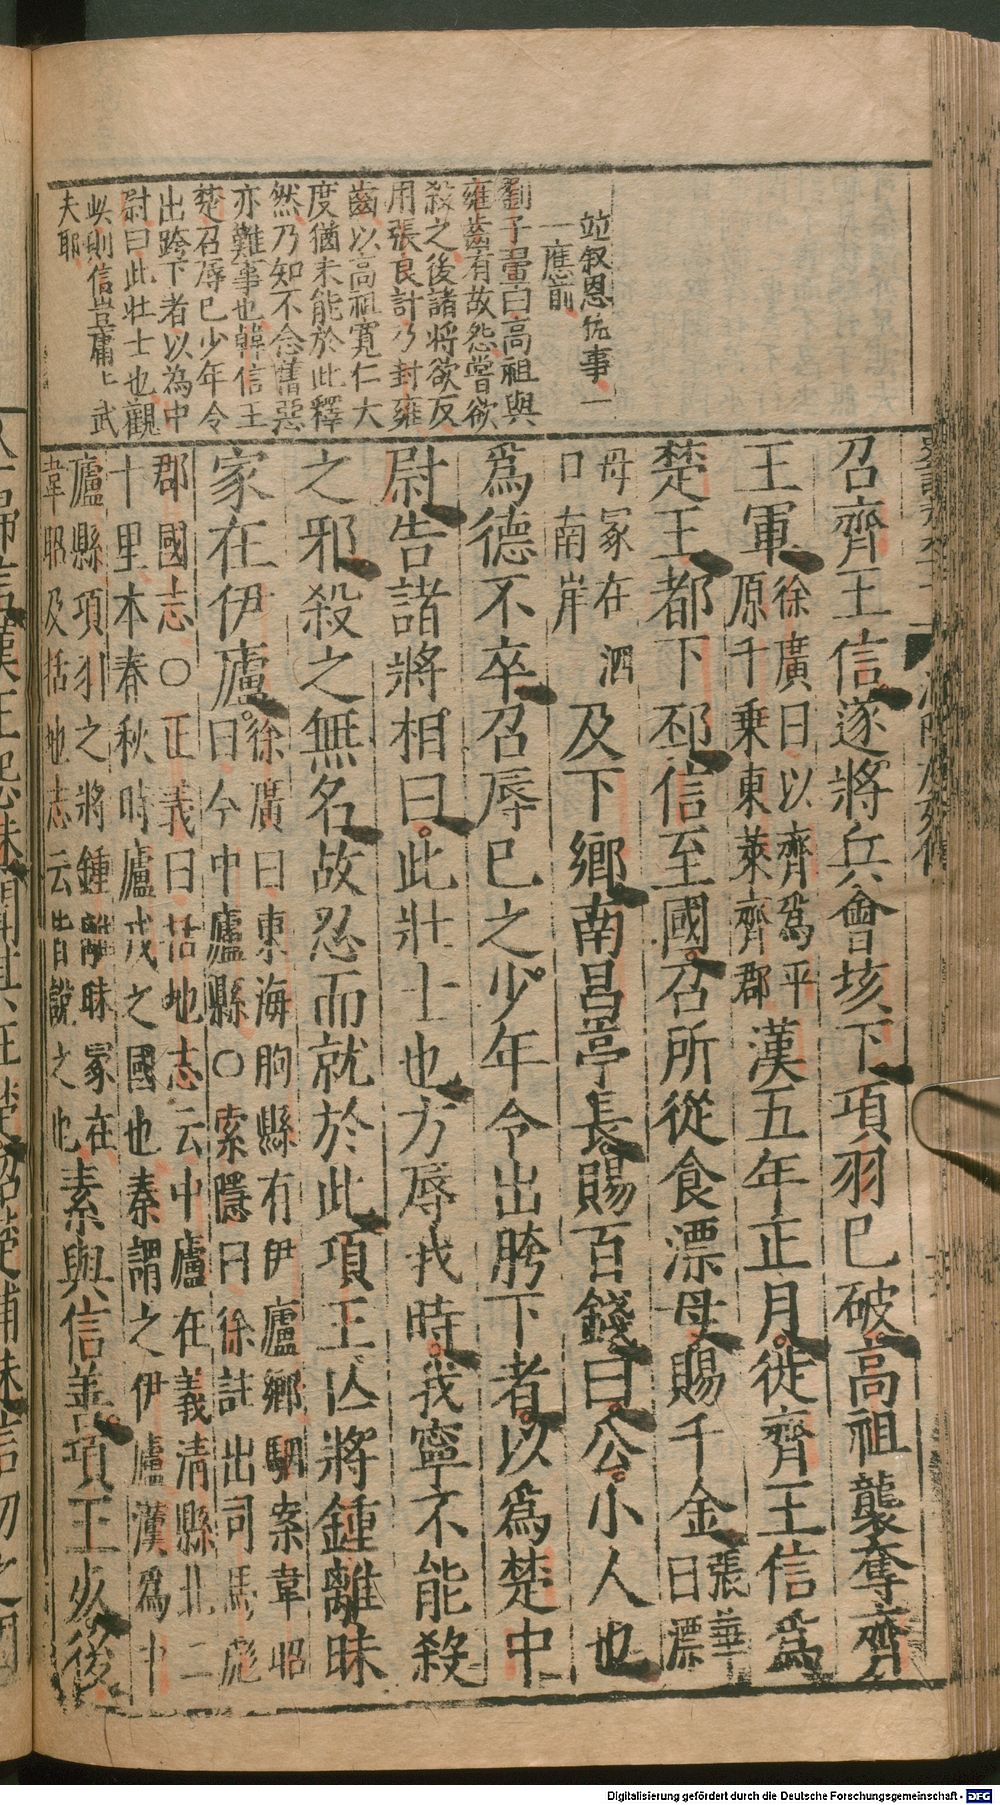 並叙恩仇事一
一應前
劉子翬曰高祖與
雍齒有故怨嘗欲
殺之後諸將欲反
用張良計乃封雍
齒以高祖寬仁大
度猶未能於此釋
然乃知不念舊惡
亦難事也韓信王
楚召辱已少年令
出跨下者以為中
尉曰此壯士也觀
此則信豈庸上武
夫耶
召齊王信遂將兵會垓下項羽已破高祖襲奪齊
王軍徐廣曰以齊爲平
原千乗東萊齊郡漢五年正月徙齊王信爲
楚王都下邳信至國召所從食漂母賜千金張華
曰漂
母冢在泗
口南岸及下鄉南昌亭長賜百錢曰公小人也
爲德不卒召辱已之少年令出胯下者以爲楚中
尉告諸將相曰此壯士也方辱我時我寧不能殺
之邪殺之無名故忍而就於此項王亡將鍾離眛
家在伊廬徐廣曰東海朐縣有伊廬鄉駰案韋昭
曰今中廬縣○索隱曰徐註出司馬彪
郡國志○正義曰括地志云中廬在義清縣北二
十里本春秋時廬戎之國也秦謂之伊廬漢爲中
廬縣項羽之將鍾離眛冢在
韋昭及括地志云皆說之也素與信善項王死後